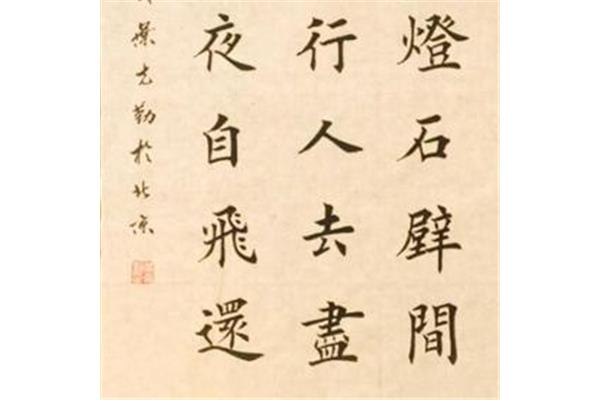 燈石壁間
行人去盡
夜自飛還
葉克勤於北京